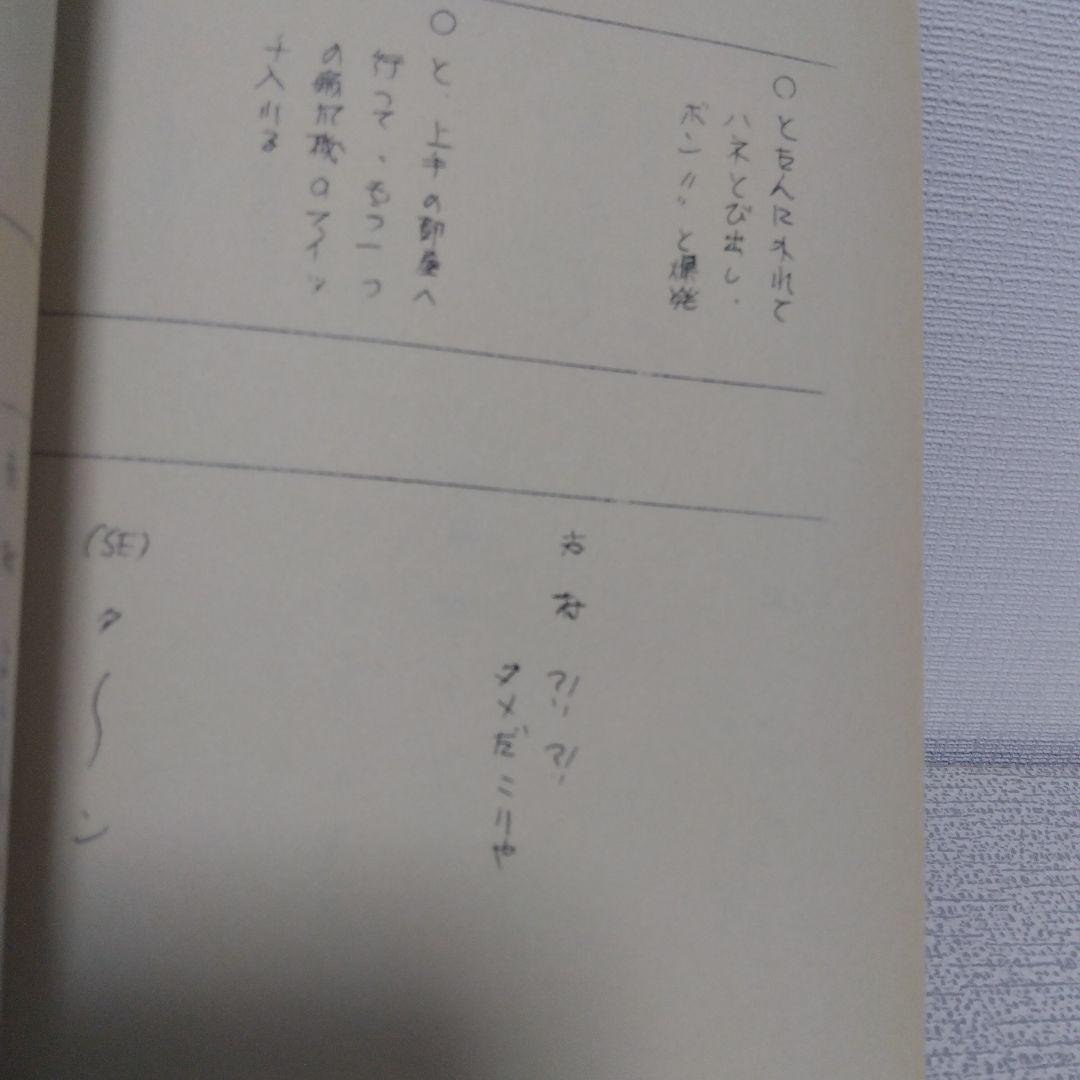 ○とたんに外れて
ハネとび出し、
ボン〃〃と爆発
○と、上手の部屋へ
行って、もう一つ
の機のスイッ
チ入れる
?!?!
ダメだこりゃ
(SE)
〜ン